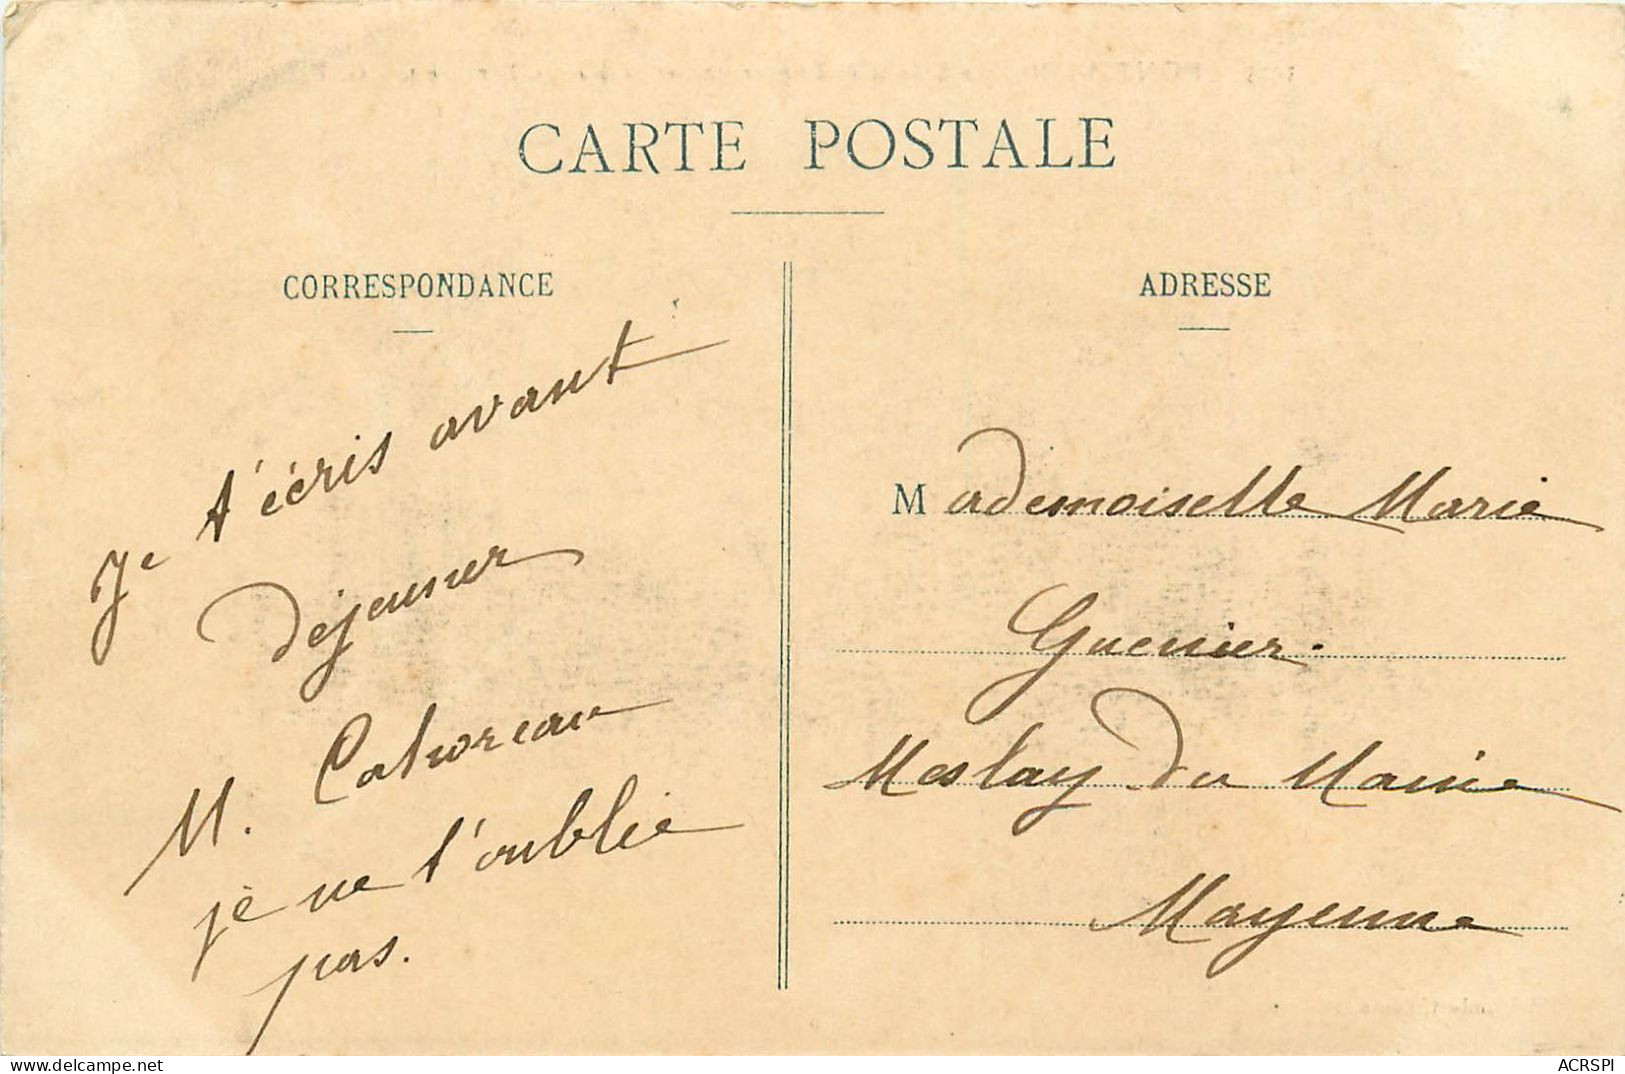 CARTE POSTALE
CORRESPONDANCE
ADRESSE
Je t'écris avant
déjeuner
M. Catroreau
je ne t'oublie
pas.
Mademoiselle Marie
Guenier.
Meslay du Maine
Mayenne
https://www.delcampe.net
ACRSPI